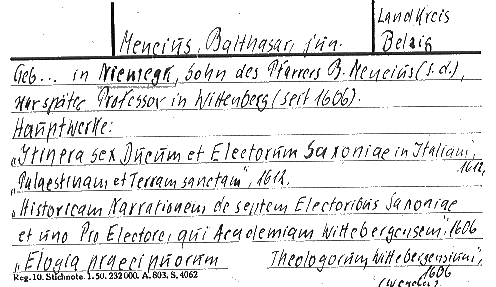 Mencius, Balthasar, jun.
Landkreis
Belzig
Geb... in Niemegk, Sohn des Pfarrers B. Mencius (s.d.),
war später Professor in Wittenberg (seit 1606).
Hauptwerke:
„Itinera sex Ducum et Electorum Saxoniae in Italiam,
1612,
Palaestinam et Terram sanctam", 1612,
„Historicam Narrationem, de septem Electoribus Saxoniae
et uno Pro Electore, qui Academiam Wittebergensem". 1606
„Elogia praecipuorum Theologorum Wittebergensium",
1606
Reg. 10. Stichnote. 1. 50. 232000. A. 803. S. 4062